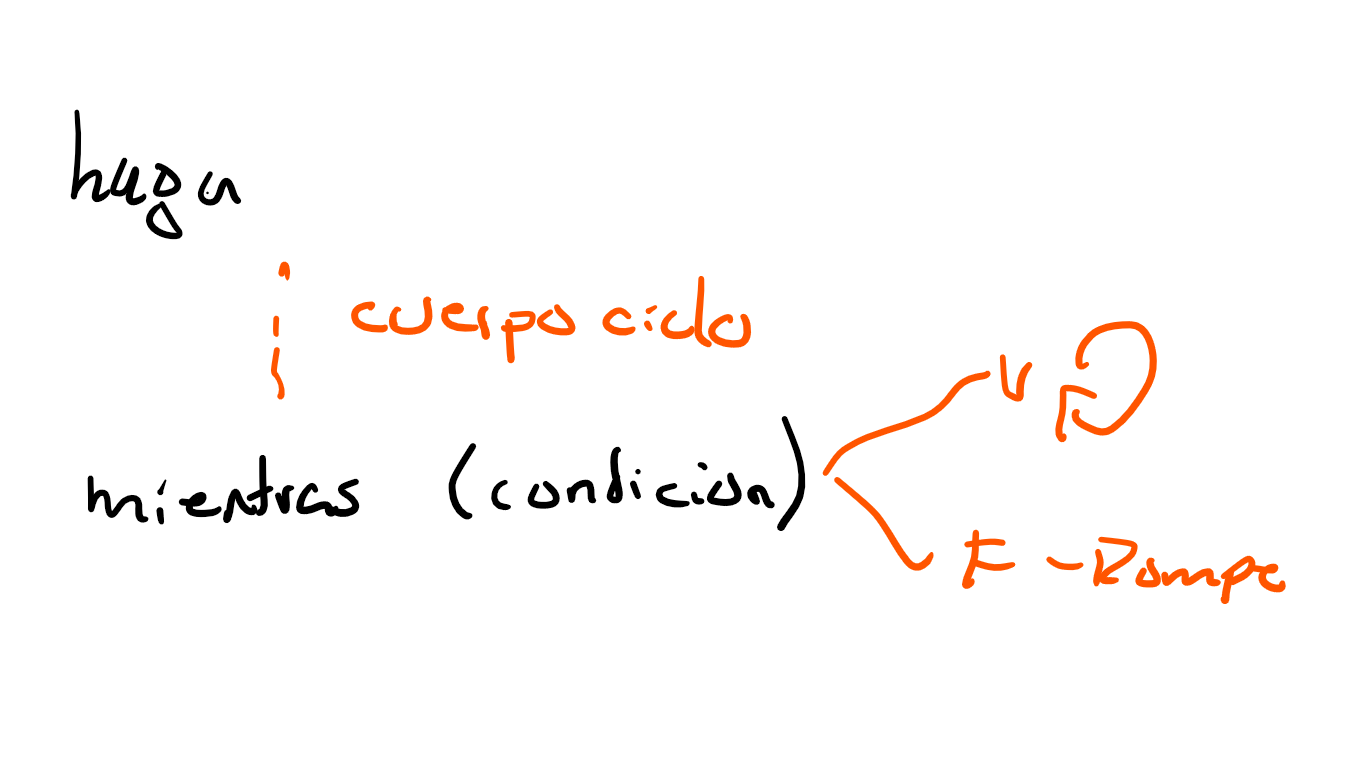 haga
cuerpo ciclo
V
mientras (condicion)
F - Rompe